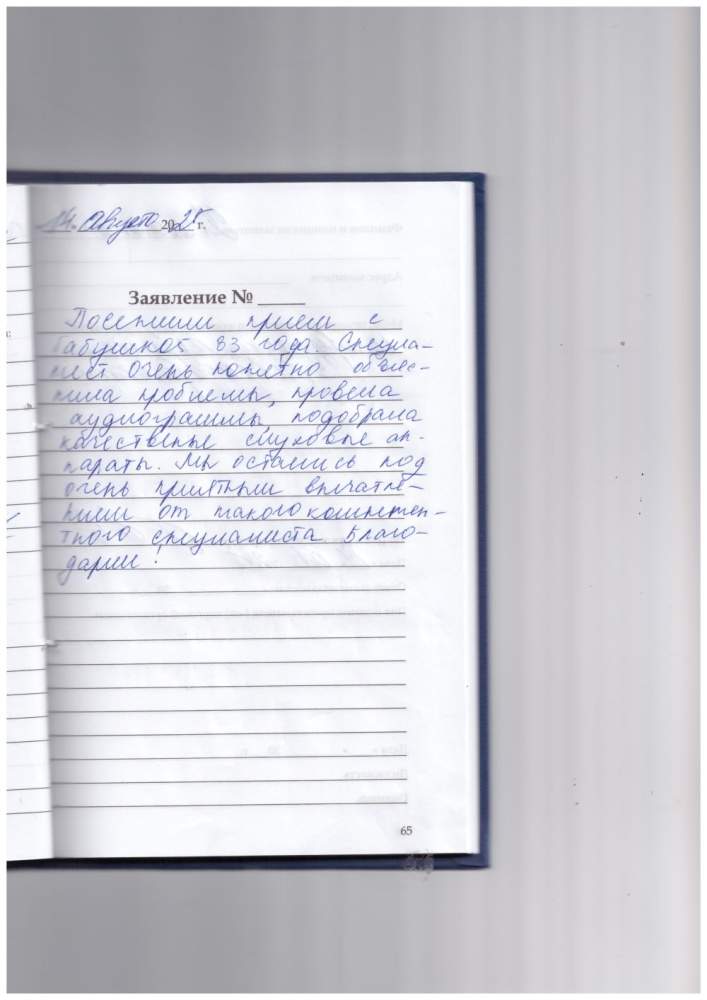 14. Августа 2025 г.
Заявление № _____
Посетили прием с
бабушкой 83 года. Специа-
лист очень понятно объяс-
нила проблемы, провела
аудиограммы, подобрала
качественые слуховые ап-
параты. Мы остались под
очень приятным впечатле-
нием от такого компетен-
тного специалиста. Благо-
дарим!
65